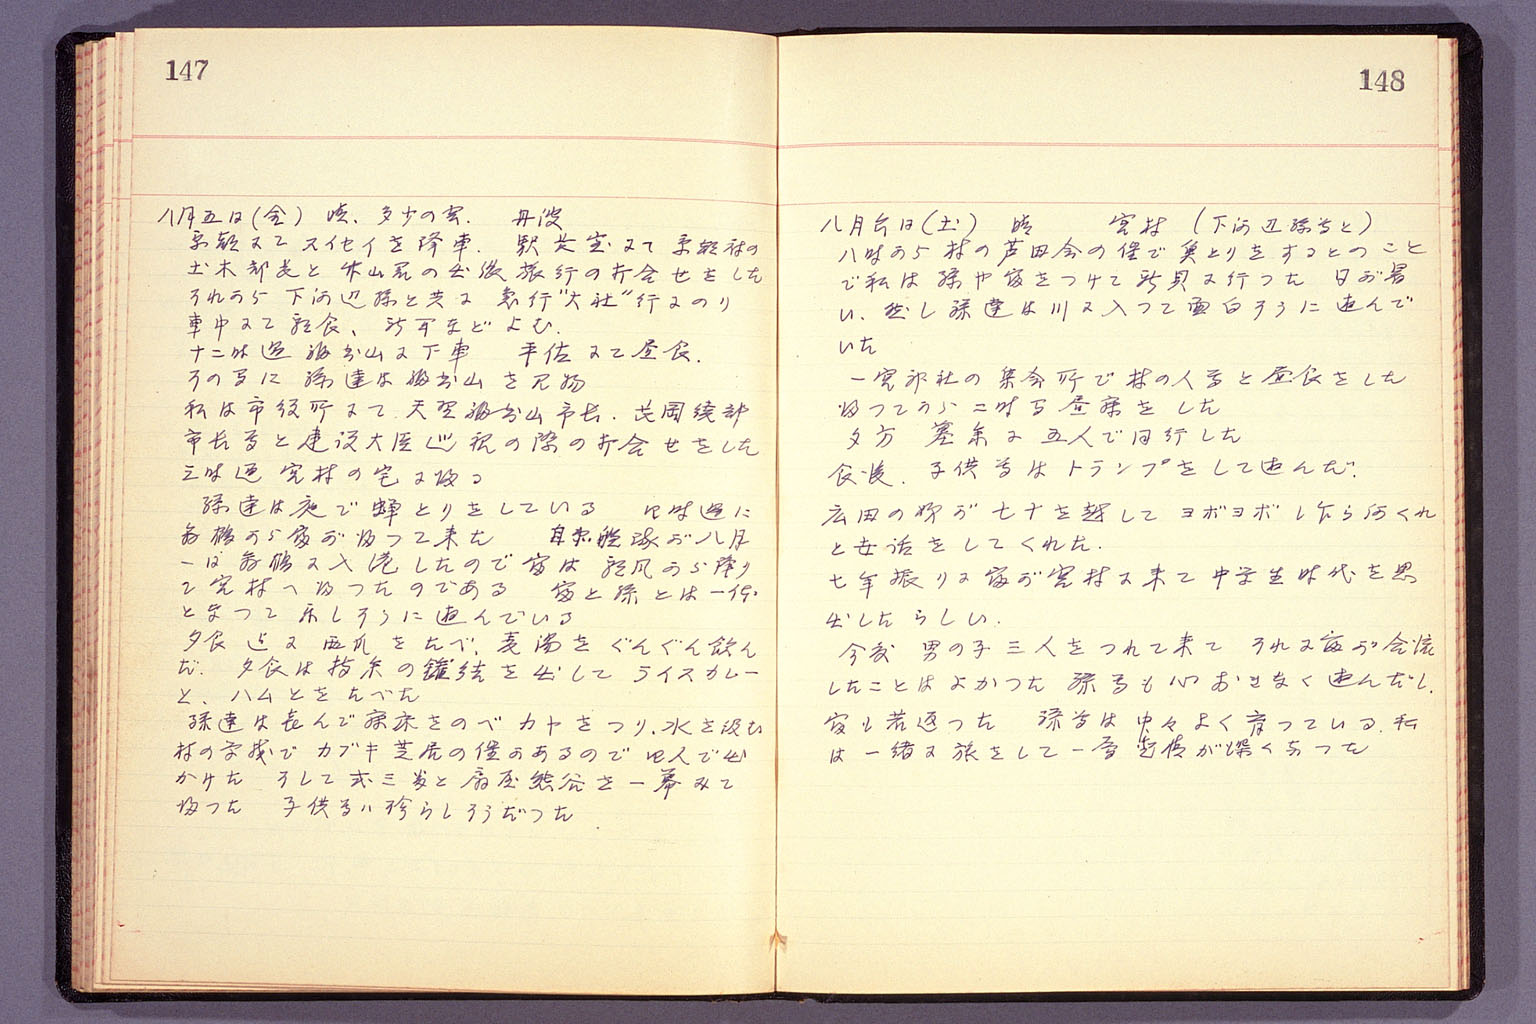 147
八月五日(金) 晴、多少の雲. 丹波
京都にて スイセイを降車. 駅長室にて 京都府の
土木部長と 的出張の 旅行の打合せをした
それから 下河辺孫と共に 急行"大社"行にのり
車中にて 朝食、 などよむ.
十二時過 福知山に下車 平佐にて昼食.
その間に 孫達は福知山を見物
私は市役所にて 福知山市長. 長岡綾部
市長等と建設大臣巡視の際の打合せをした
三時過 宮村の宅に帰る
孫達は庭で蝉とりをしている 四時過に
舞鶴から寛が帰って来た 自衛艦隊が八月
一日舞鶴に入港したので寛は 朝凪から降り
て宮村へ帰ったのである 寛と孫とは一体
となって 楽しそうに遊んでいる
夕食 近に 西瓜をたべ、麦湯をぐんぐん飲ん
だ. 夕食は持参の罐詰を出して ライスカレー
と、ハムとをたべた
孫達は喜んで寝床をのべ カヤをつり、水を汲む
村の学校で カブキ芝居の催があるので 四人で出
かけた そして 式三番と 扇屋熊谷を一幕みて
帰った 子供等ハ珍らしそうだった
148
八月六日(土) 晴 宮村 (下河辺孫等と)
八時から 村の芦田会の催で魚とりをするとのこと
で私は孫や寛をつれて 見に行った 日が暑
い. 然し孫達は川に入って面白そうに遊んで
いた
一宮神社の集会所で村の人等と昼食をした
帰ってから 二時間昼寝をした
夕方 墓参に 五人で同行した
食後. 子供等はトランプをして遊んだ.
広田の姉が七十を越して ヨボヨボし乍ら何くれ
と世話をしてくれた.
七年振りに寛が宮村に来て中学生時代を思
出したらしい.
今度 男の子三人をつれて来て それに寛が合流
したことはよかった 孫等も心おきなく遊んだし、
寛も若返った 孫等は中々よく育っている. 私
は一緒に旅をして一層愛情が深くなった